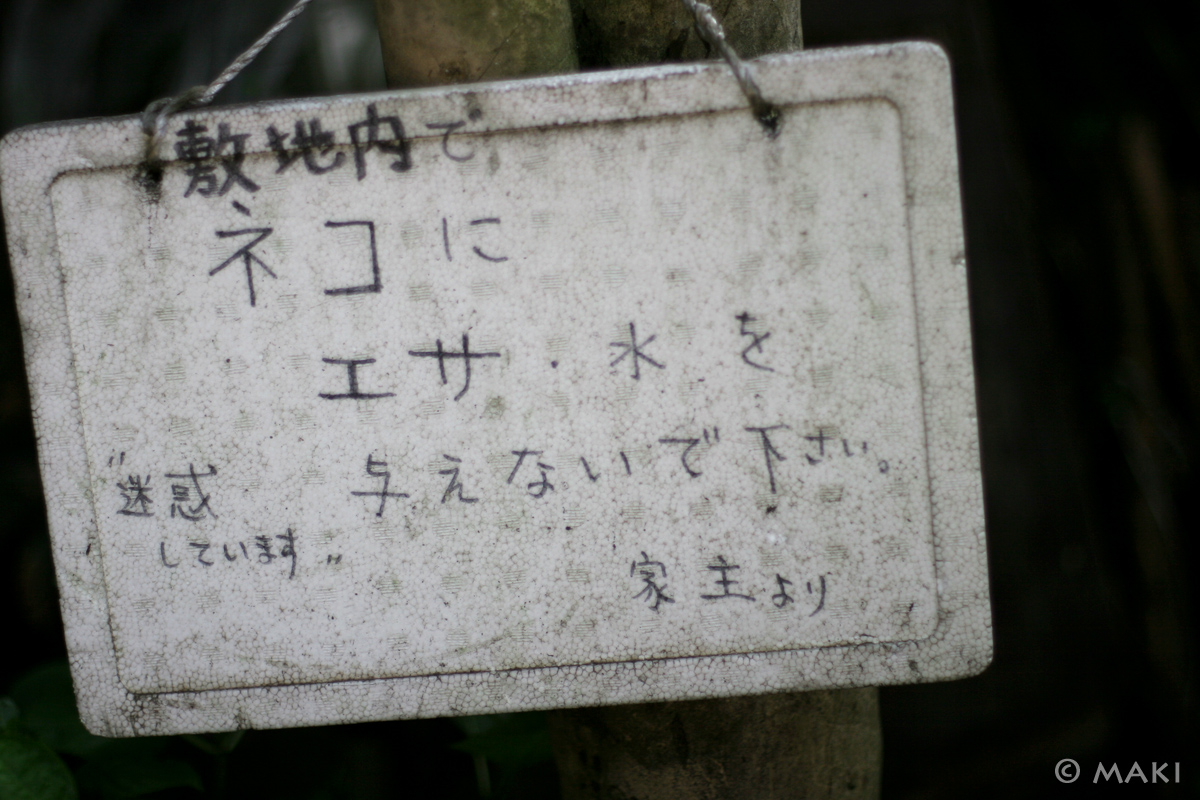 敷地内で
ネコに
エサ・水を
与えないで下さい。
"迷惑
しています"
家主より
© MAKI